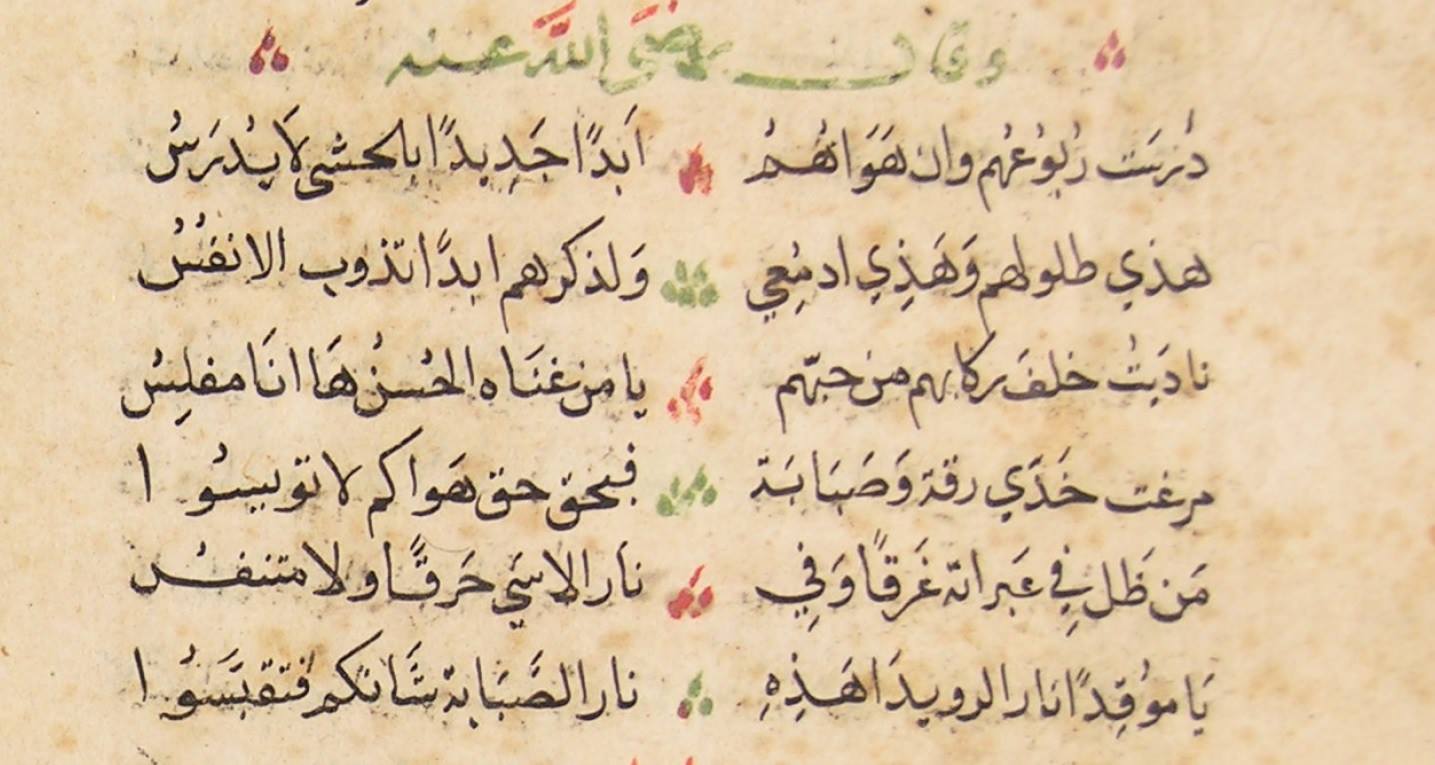 وقال رضي الله عنه
دُرِسَت رُبُوعُهُم وان هَوَاهُمُ اَبدًا جَدِيدًا بالحشى لَا يُدرَسُ
هذي طلولهم وَهَذِي ادمُعِي وَلذكرهم ابدًا تذوب الانفُسُ
نادَيتُ خلفَ ركابهم من حبّهم يا من غنَاه الحُسنُ هَا انَا مفلِسُ
مرغت خَدّي رقة وَصَبَابَة فبحق حق هَواكم لا تويسُوا
مَن ظَل فِي عَبراته غَرقًا وَفِي نَار الاسَي حَرقًا ولا متنفسُ
يَا موُقِدًا نارا الرويدَا هَذِهِ نار الصَّبَابة شَانكم فتقبَسُوا